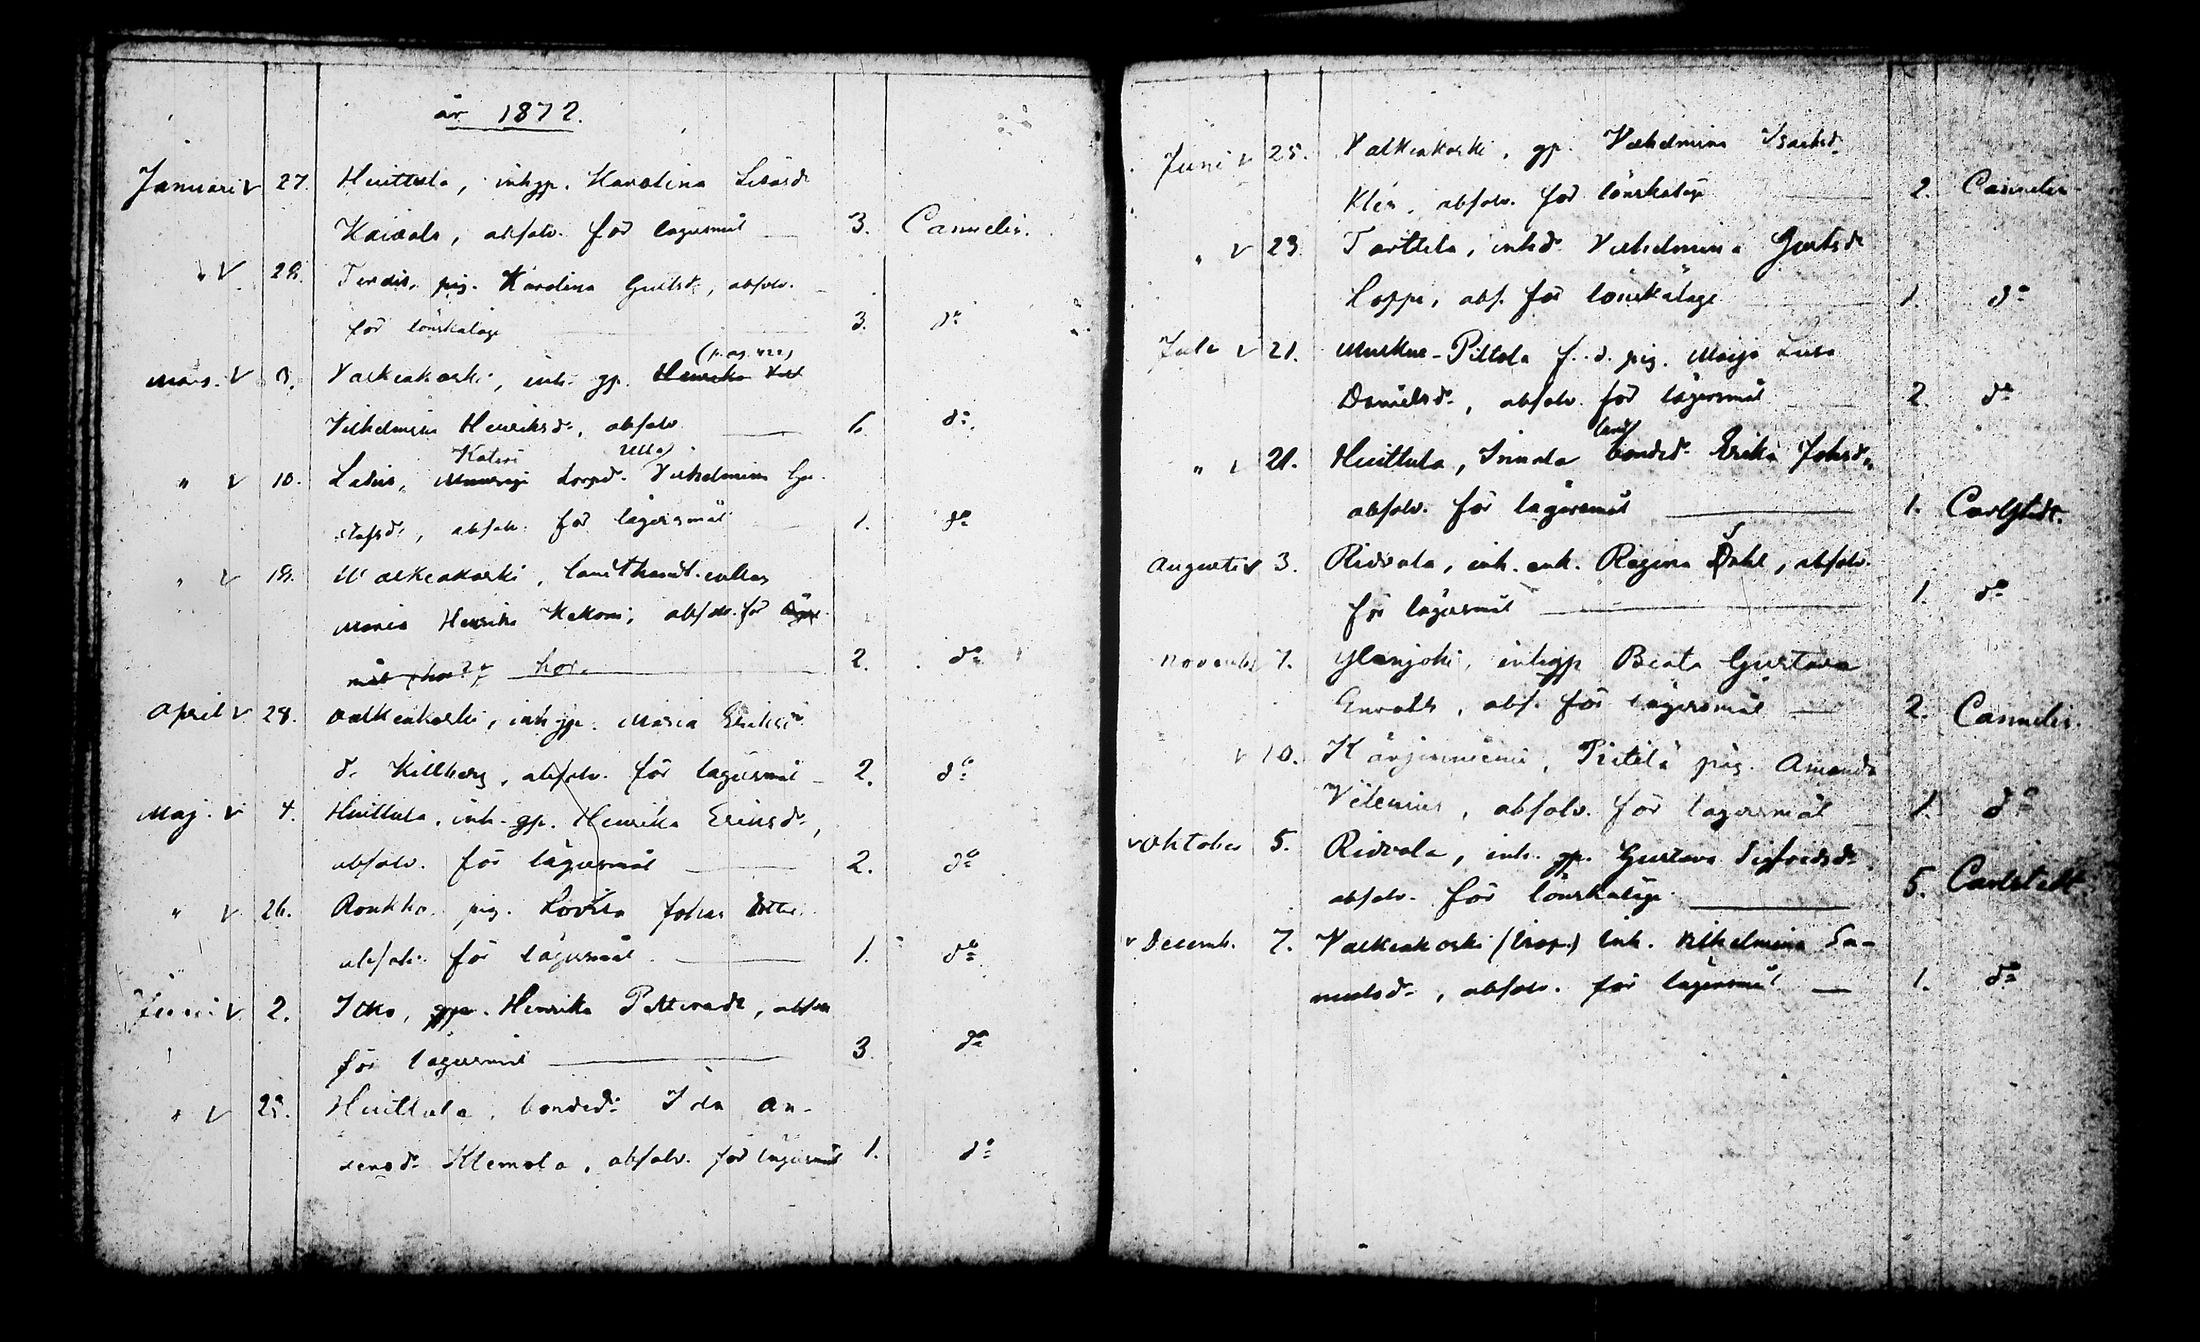 år 1872.
Januari v 27. Huittula, inhgp. Karolina
Kaivola, absolv. för lägersmål — 3. Canuelin.
" v 28. pig. Karolina Gustsd., absolv.
för lönskaläge 3. do
Mars. v 3. Valkeakoski, inh. gp. Henrika
Vilhelmina Henriksd., absolv. — do
Kaisa Ulla
" v 10. Vilhelmina Gu-
stafsd., absolv. för lägersmål 1. do
" v 18. Walkeakoski, enkan
Maria Henrika Kekoni, absolv. för läger-
mål hor. — 2. do
April v 28. Valkeakoski, inhgp. Maria Eriks
d. Killberg, absolv. för lägersmål — 2. do
Maj. v 4. Huittula, inh. gp. Henrika Eriksd.,
absolv. för lägersmål — 2. do
" v 26. Roukko pig. Lovisa Johans dotter
absolv. för lägersmål — 1. do
Juni v 2. Itko, gp. Henrika Pettersd., absolv
för lägersmål — 3. do
" v 25. Huittula, bonded. Ida An-
dersd. Klemola, absolv. för lägersmål 1. do
Juni v 25. Valkeakoski, gp. Vilhelmina Isaksd.
Klén, absolv. för lönskaläge 2. Canuelin
" v 23. Tarttila, inhd. Vilhelmina Gustsd.
Loppi, abs. för lönskaläge 1. do
Juli v 21. Muikku-Pittola f. d. pig. Maija Lisa
Danielsd., absolv. för lägersmål 2. do
land
" v 21. Huittula, Innala bonded. Erika Johsd.,
absolv. för lägersmål — 1. Carlstedt.
Augusti v 3. Ridvala, inh. enk. Regina Dahl, absolv.
för lägersmål — 1. do
November 7. Ylänjoki, inhgp Beata Gustava
Enroth, abs. för lägersmål — 2. Canuelin.
v 10. Kärjenniemi, Pietilä pig. Amanda
Vilenius, absolv. för lägersmål 1. do
v Oktober 5. Ridvala, inh. gp. Gustava Sigfridsd.,
absolv. för lönskaläge — 5. Carlstedt
v Decemb. 7. Valkeakoski inh. Vilhelmina Sa-
muelsd., absolv. för lägersmål — 1. do